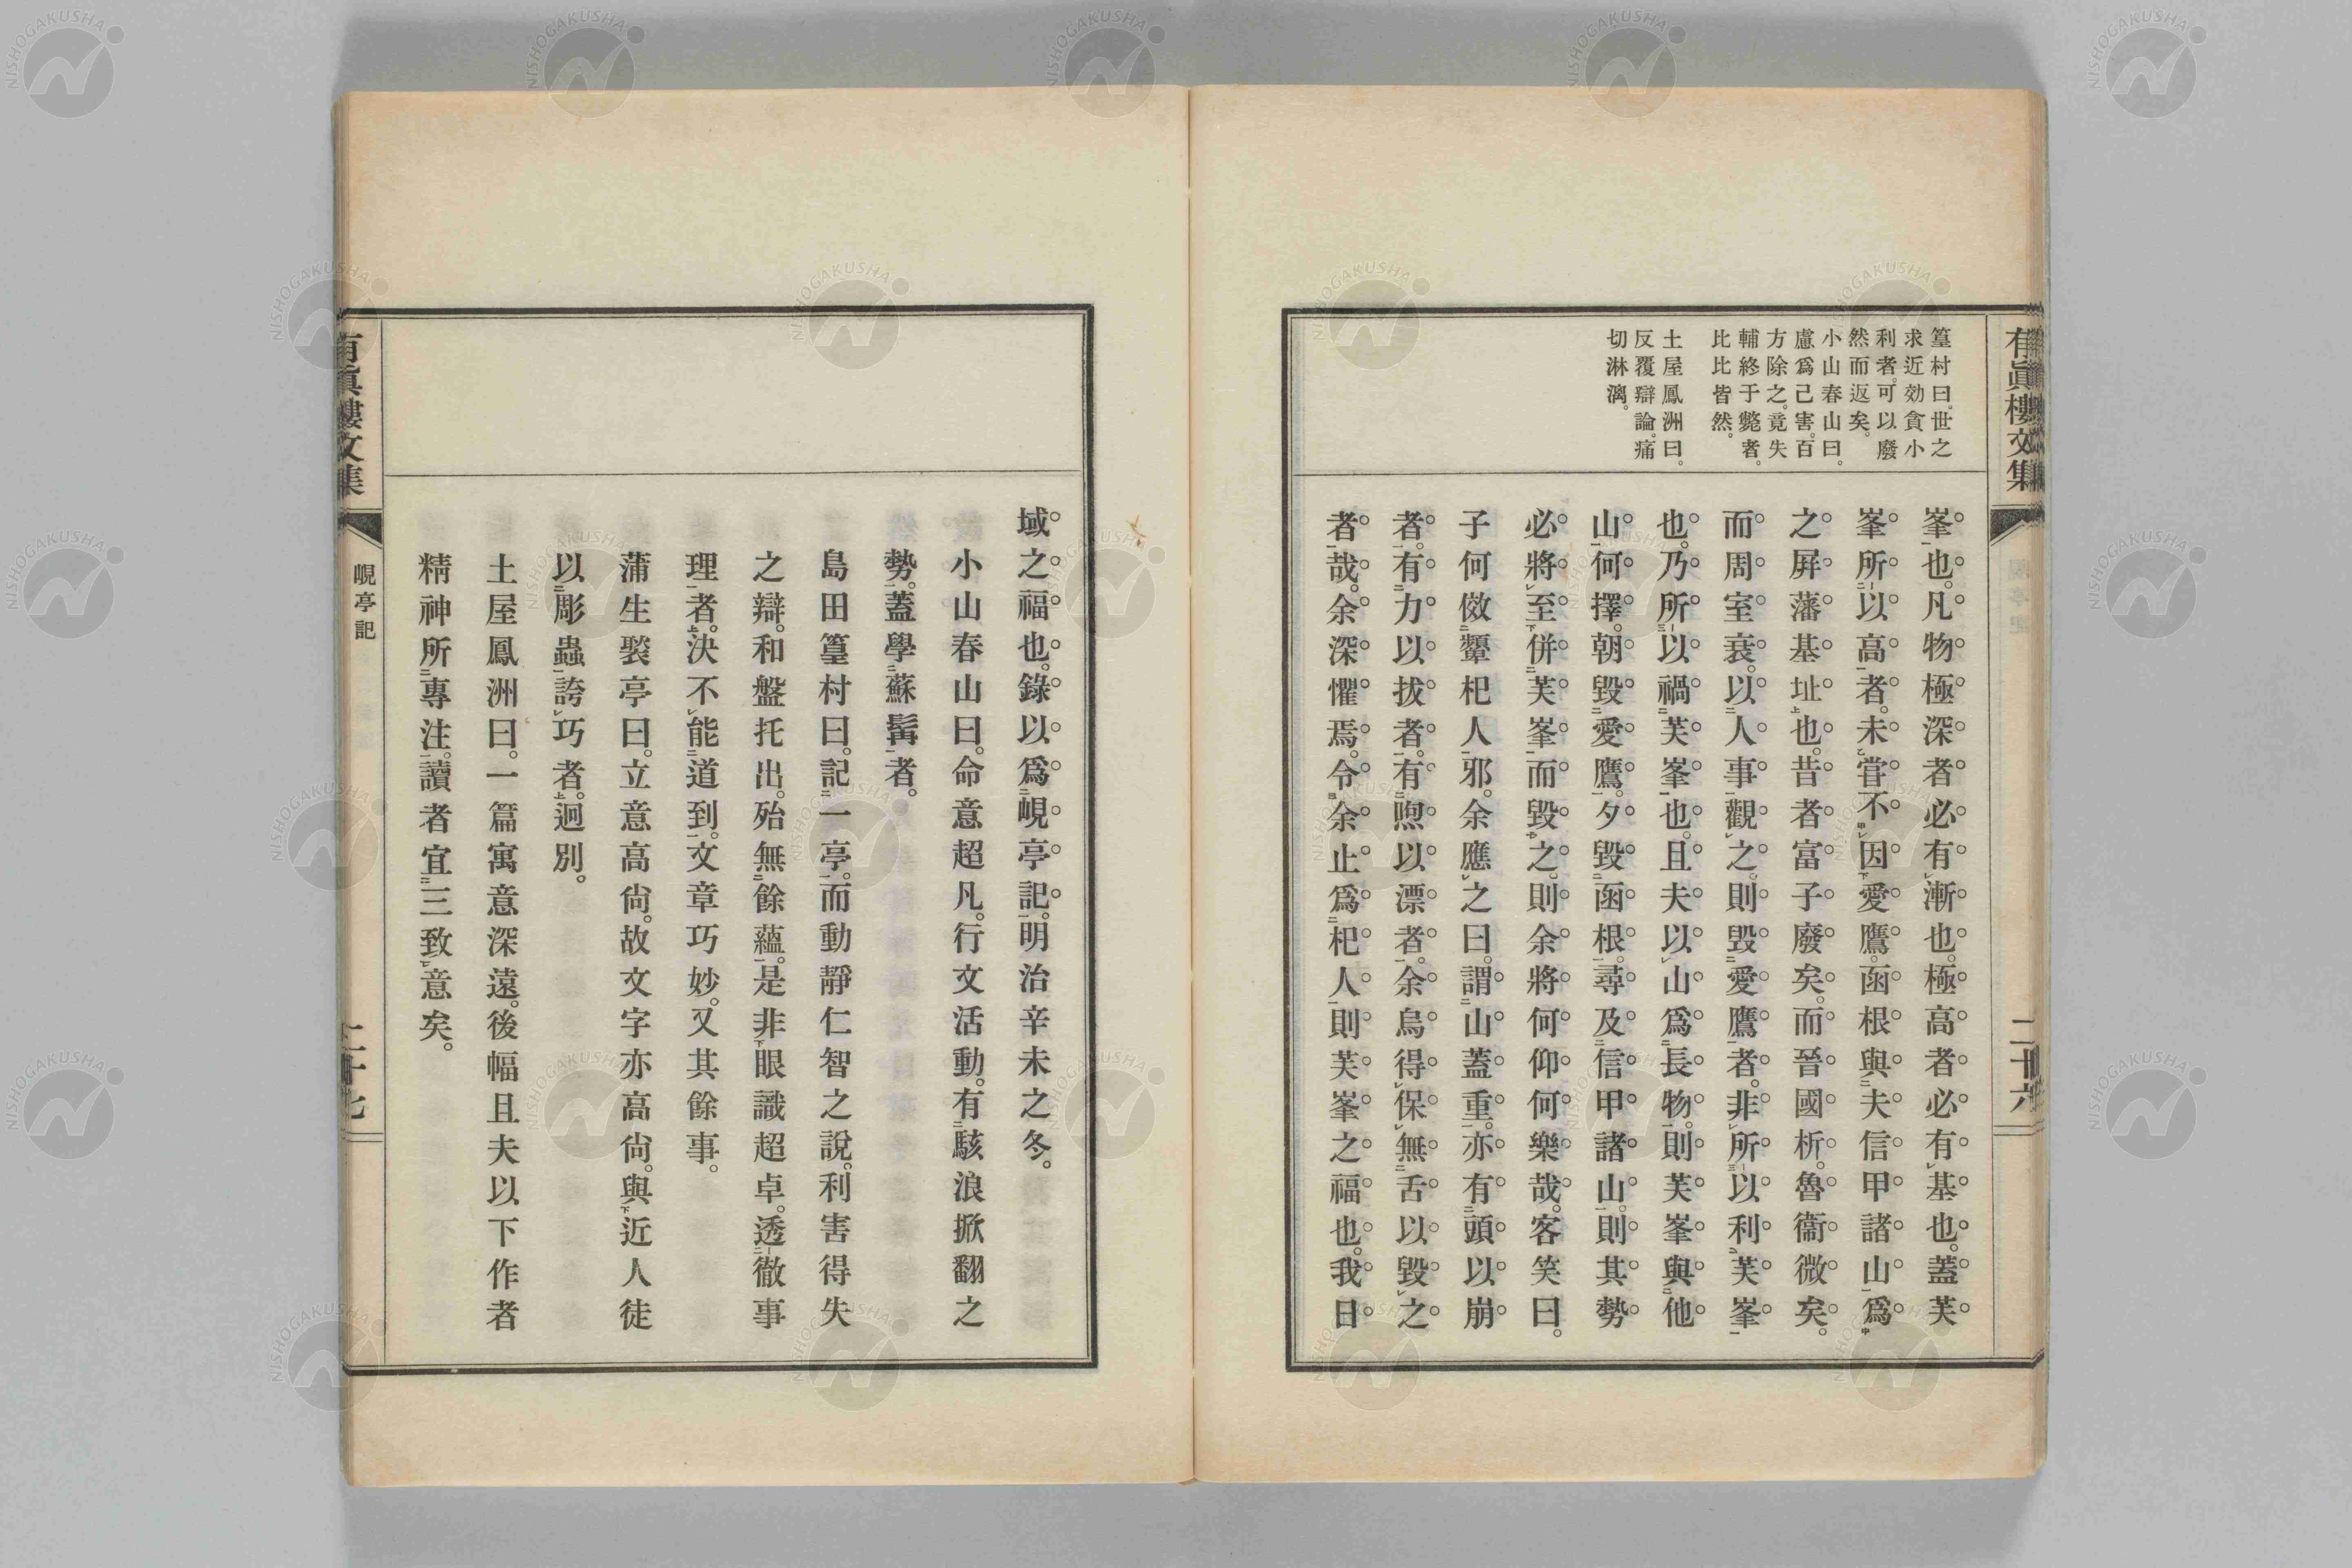 有眞樓文集
二十六
篁村曰。世之
求近効貪小
利者。可以廢
然而返矣。
小山春山曰。
慮爲己害。百
方除之。竟失
輔終于斃者。
比比皆然。
土屋鳳洲曰。
反覆辯論。痛
切淋漓。
峯一也。凡物極深者必有レ漸也。極高者必有レ基也。蓋芙
峯所二-以高一者。未レ甞不丙レ因下愛鷹。函根與二夫信甲諸山一爲中
之屏藩基址上也。昔者富子廢矣。而晉國析。魯衞微矣。
而周室衰。以二人事一觀レ之。則毀二愛鷹一者。非レ所三-以利二芙峯一
也。乃所三-以禍二芙峯一也。且夫以レ山爲二長物一。則芙峯與二他
山一何擇。朝毀二愛鷹一。夕毀二函根一。尋及二信甲諸山一。則其勢
必將レ至下併二芙峯一而毀中之。則余將何仰何樂哉。客笑曰。
子何傚二顰杞人一邪。余應レ之曰。謂二山蓋重一。亦有二頭以崩
者一。有二力以拔者一。有二煦以漂者一。余烏得レ保レ無二舌以毀レ之
者一哉。余深懼焉。令余止爲二杞人一。則芙峯之福也。我日
域之福也。錄以爲二峴亭記一。明治辛未之冬。
小山春山曰。命意超凡。行文活動。有二駭浪掀翻之
勢一。蓋學二蘇髯一者。
島田篁村曰。記二一亭一。而動靜仁智之說。利害得失
之辯。和盤托出。殆無二餘蘊一。是非下眼識超卓。透二-徹事
理一者上。決不レ能二道到一。文章巧妙。又其餘事。
蒲生褧亭曰。立意高尙。故文字亦高尙。與下近人徒
以二彫蟲一誇レ巧者上。迥別。
土屋鳳洲曰。一篇寓意深遠。後幅且夫以下作者
精神所二專注一。讀者宜三三致レ意矣。
有眞樓文集
峴亭記
二十七